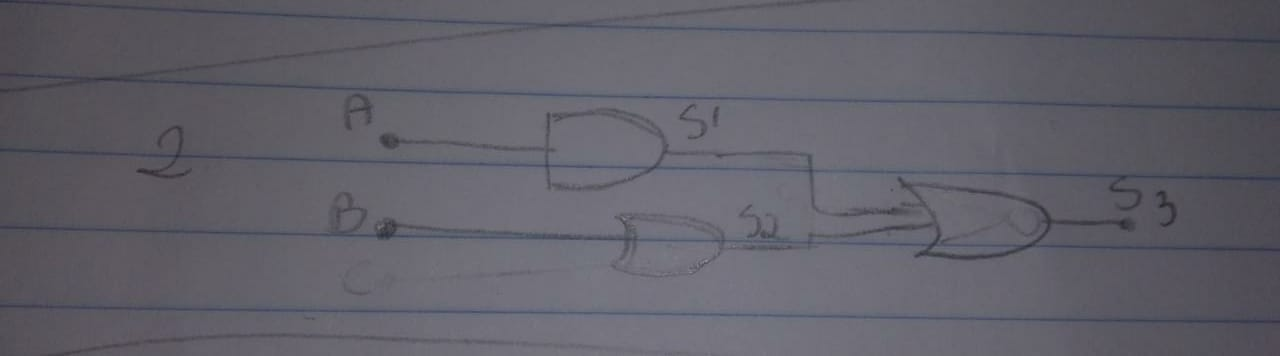 2
A
S1
B
S2
S3
C